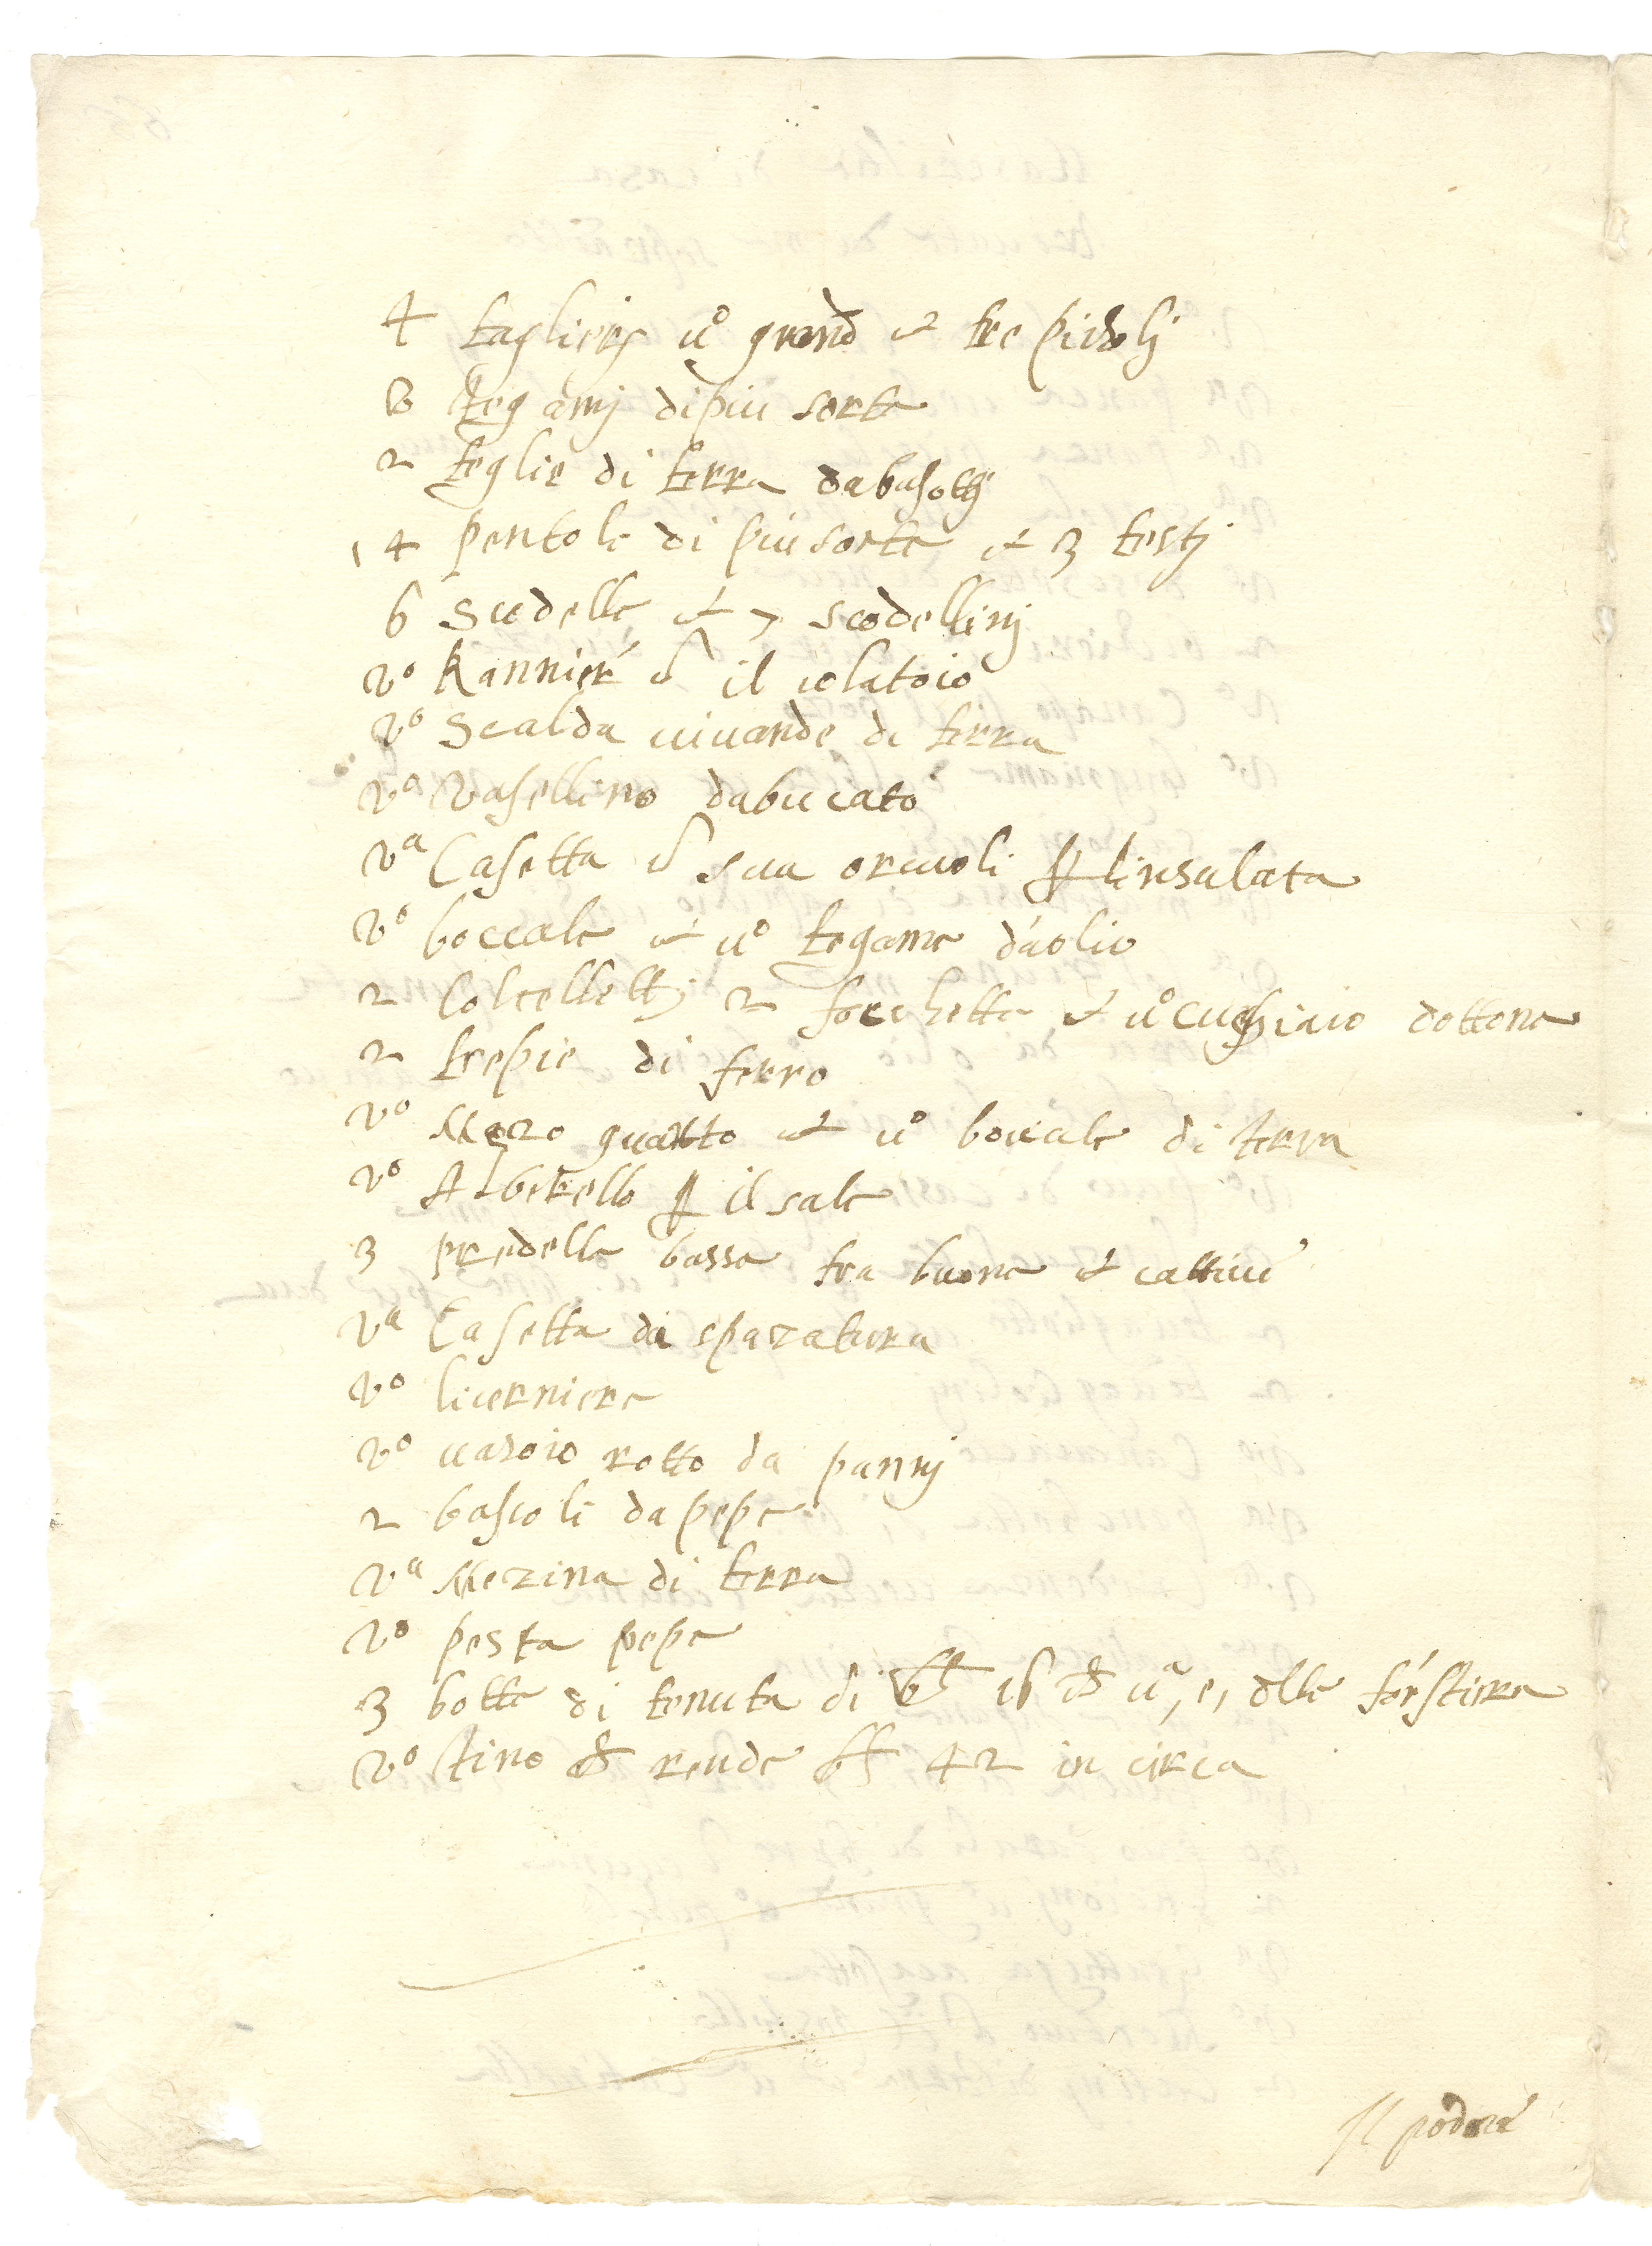 4 taglierj uº grand et tre picolj
8 tegamj dipiu sorte
2 teglie di terra da
14 pentole di piu sorte et 3 testj
6 Scodelle et 7 scodellinj
Vº Rannier cº il colatoio
Vº Scalda uiuande di terra
Vº Vasellino dabucato
Vª Casetta cº sua orciuoli p linsalata
Vº boccale et uº tegame d'aolio
2 Coltellettj 2 forchette et uº cuchiaio dottone
2 trepie di ferro
Vº Mezo quarto et uº boccale di terra
Vº Alberello p il sale
3 predelle basse fra buone et cattiue
Vª Casetta da spazatura
Vº lucerniere
Vº uasoio rotto da pannj
2 bascoli da pepe
Vª Mezina di terra
Vº pesta pepe
3 botte di tenuta di bª 16 che uª, e, delle
Vº tino che rende bª 42 in circa
Il podere